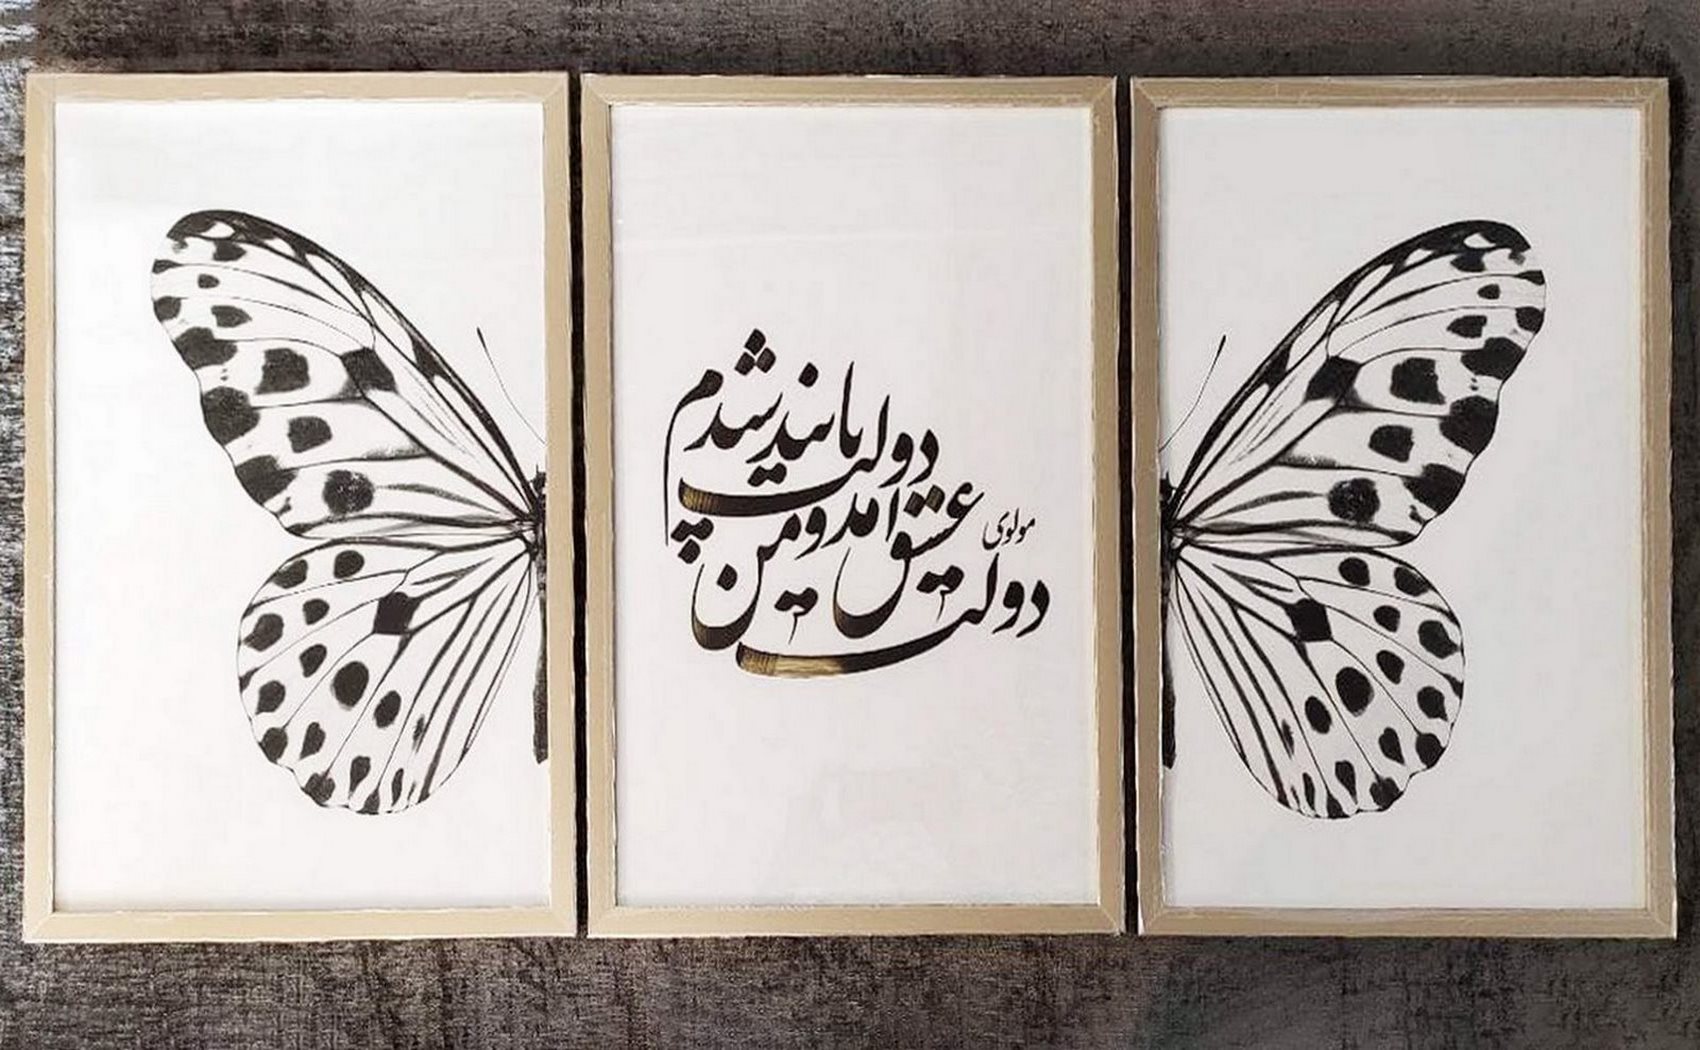 دولت عشق آمد و من
دولت پاینده شدم
مولوی